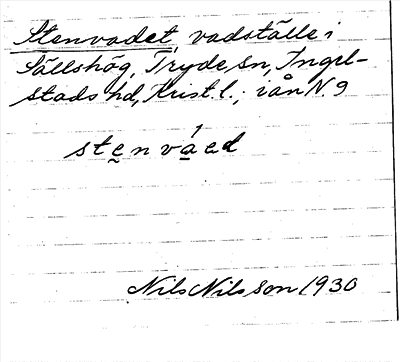 Stenvadet, vadställe i
Sällshög, Tryde sn, Ingel-
stads hd, Krist. l.; i ån N. 9
stenváed
Nils Nilsson 1930